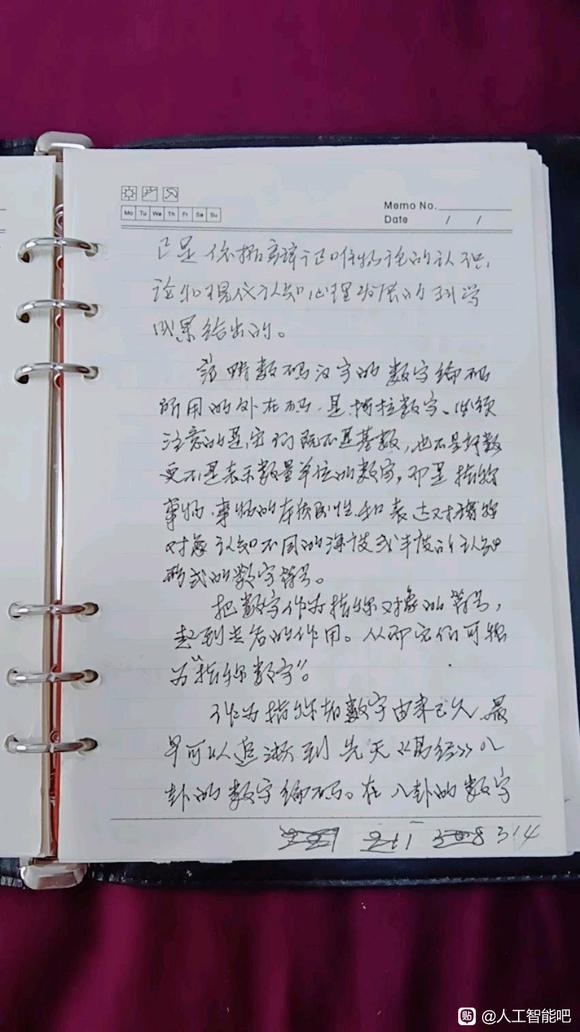 Mo Tu We Th Fr Sa Su
Memo No.
Date / /
正是依据辩证唯物论的认识
论和现代认知心理发展的科学
成果给出的。
数码汉字的数字编码
所用的外在码是阿拉数字、必须
注意的是，它们既不是基数，也不是序数
更不是表示数量单位的数字，而是指称
事物、事物的本质属性和表达对指称
对象认知不同的深度或半度的认知
形式的数字符号。
把数字作为指称对象的符号，
起到共名的作用。从而它们可称
为"指称数字"。
作为指称的数字由来已久，最
早可以追溯到先天《易经》八
卦的数字编码。在八卦的数字
314
@人工智能吧